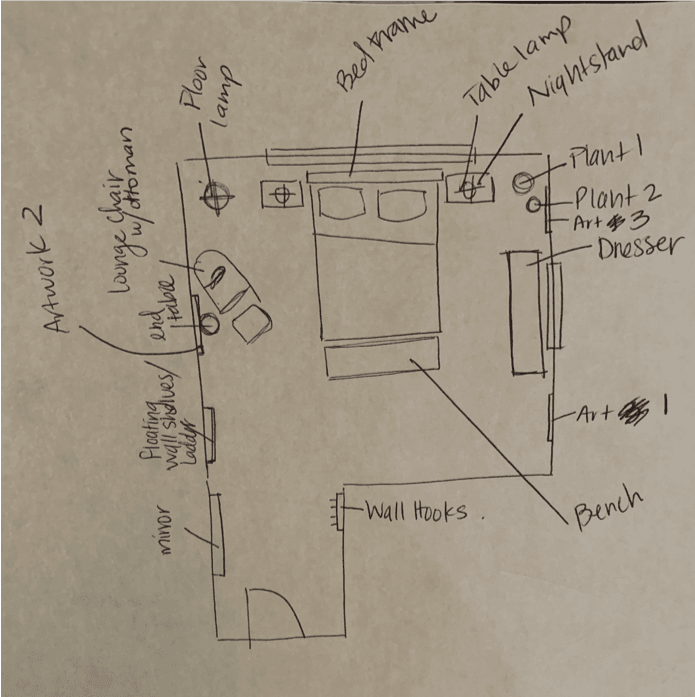 Bed Frame
Table lamp
Nightstand
Floor
lamp
Plant 1
Plant 2
Art 3
Dresser
Lounge Chair
w/ ottoman
Artwork 2
end
table
Floating
wall shelves/
Ladder
Art 1
mirror
Wall Hooks.
Bench